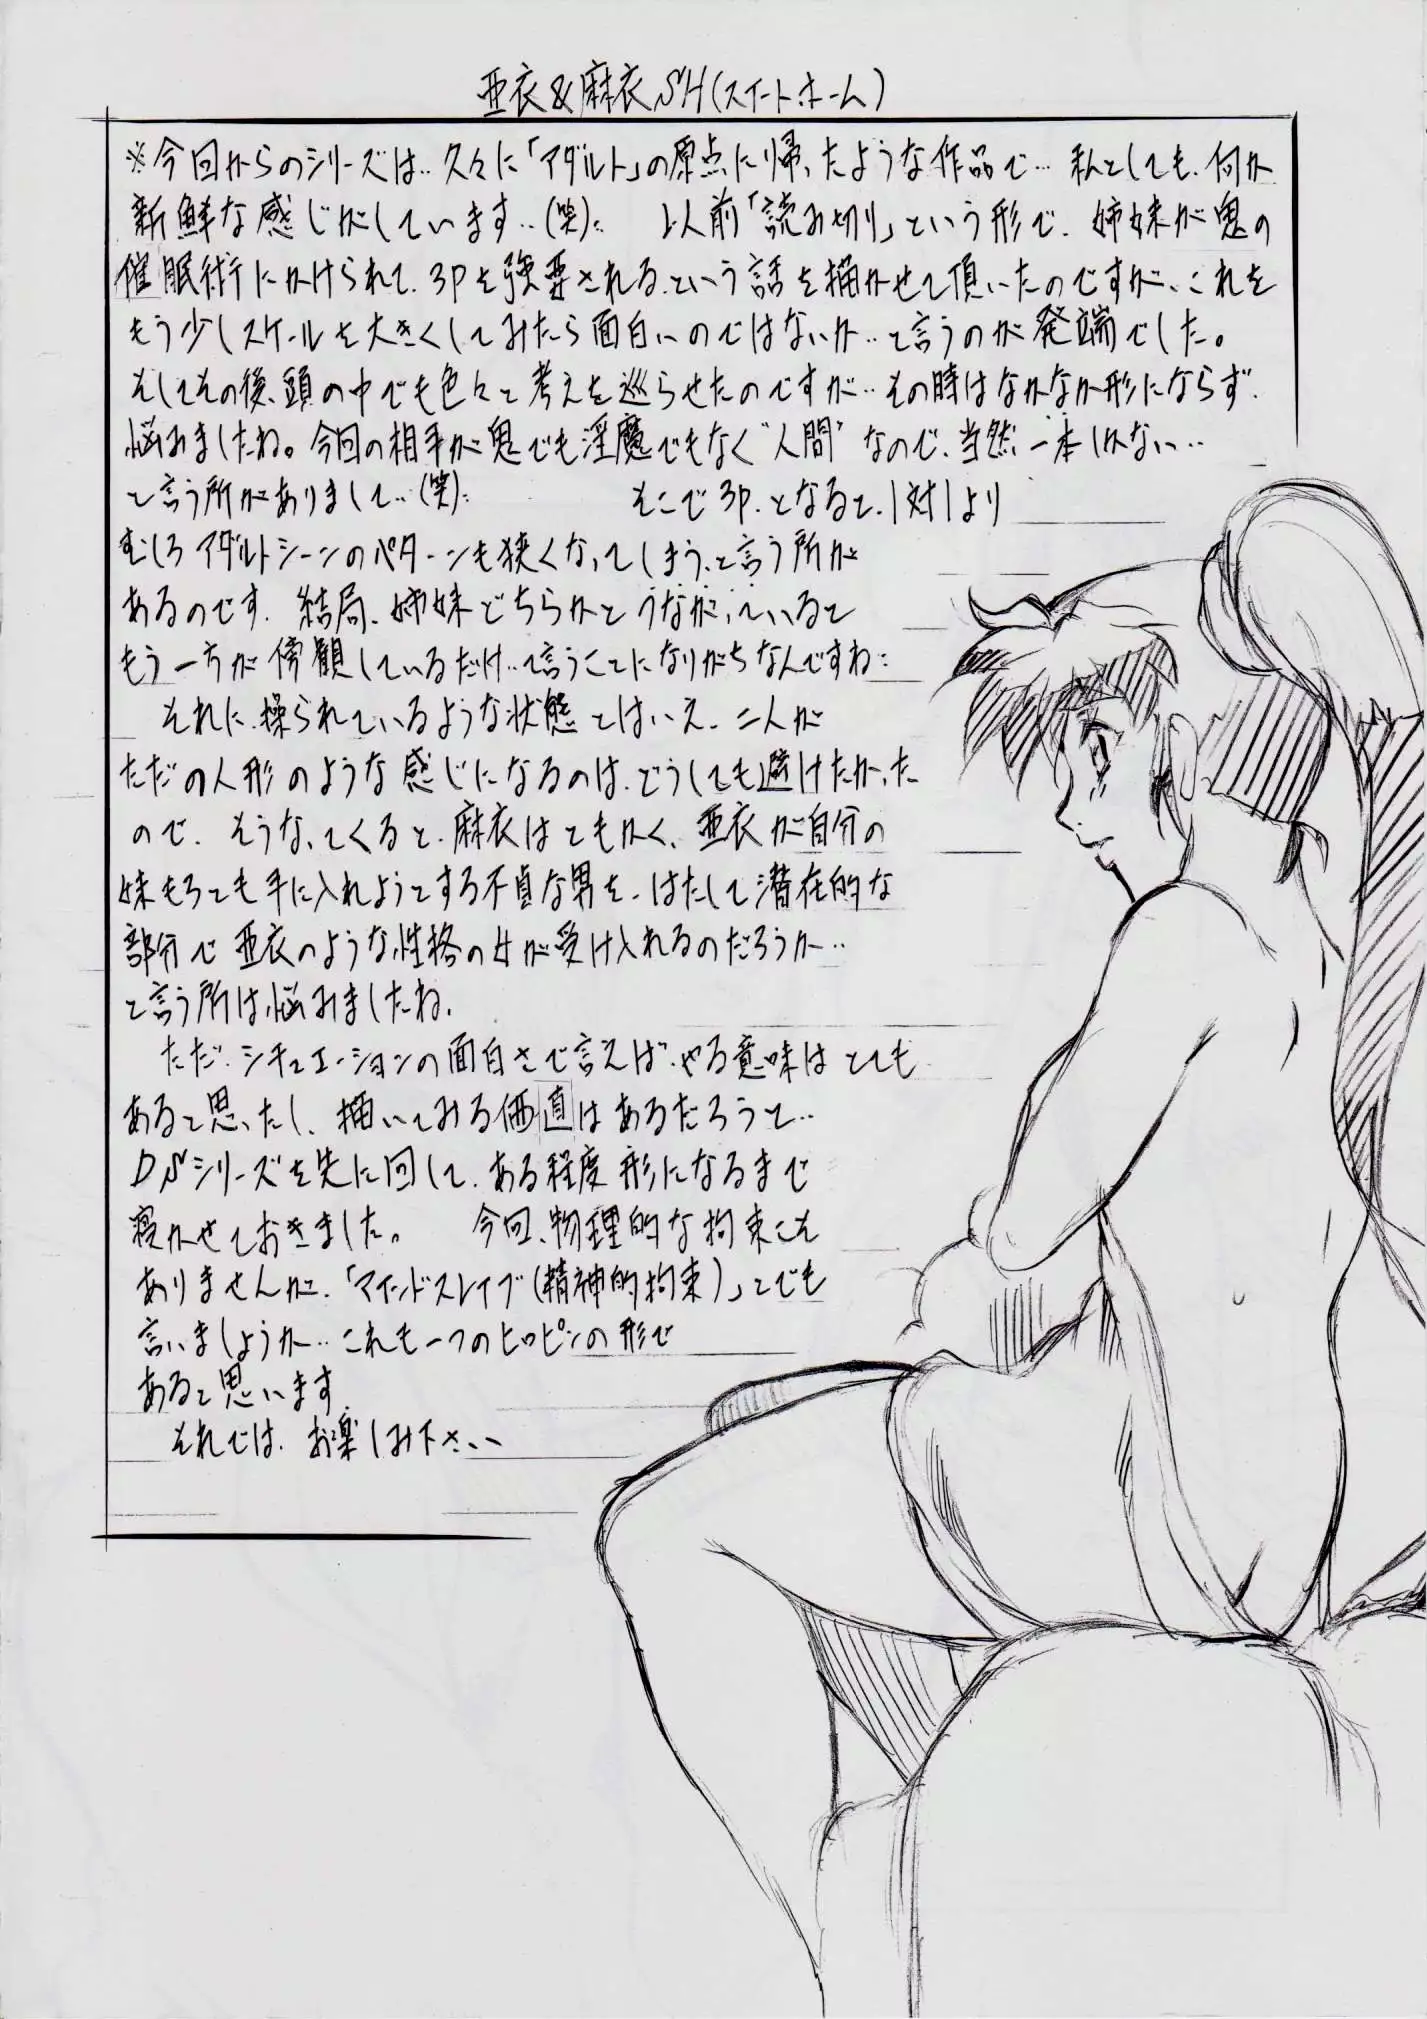 亜衣&麻衣SH(スイートホーム)
※今回からのシリーズは‥久々に「アダルト」の原点に帰ったような作品で… 私としても、何か
新鮮な感じがしています‥(笑)‥ 以前「読み切り」という形で、姉妹が鬼の
催眠術にかけられて、3Pを強要される、という話を描かせて頂いたのですが、これを
もう少しスケールを大きくしてみたら面白いのではないか‥と言うのが発端でした。
そしてその後、頭の中でも色々と考えを巡らせたのですが‥その時はなかなか形にならず、
悩みましたね。今回の相手が鬼でも淫魔でもなく“人間”なので、当然、一本しかない‥
と言う所がありまして‥(笑)‥ そこで3P、となると、1対1より
むしろアダルトシーンのパターンも狭くなってしまう、と言う所が
あるのです。結局、姉妹どちらかとつながっていると
もう一方が傍観しているだけ‥て言うことになりがちなんですね‥
それに操られているような状態とはいえ、二人が
ただの人形のような感じになるのは、どうしても避けたかった
ので、そうなってくると、麻衣はともかく、亜衣が自分の
妹もろとも手に入れようとする不貞な男を、はたして潜在的な
部分で亜衣のような性格の女が受け入れるのだろうか‥
と言う所は悩みましたね、
ただ、シチュエーションの面白さで言えば、やる意味はとても
あると思ったし、描いてみる価値はあるだろうと…
DSシリーズを先に回して、ある程度形になるまで
寝かせておきました。 今回、物理的な拘束こそ
ありませんが、「マインドスレイブ(精神的拘束)」とでも
言いましょうか‥これも一つのヒロピンの形で
あると思います
それでは、お楽しみ下さい